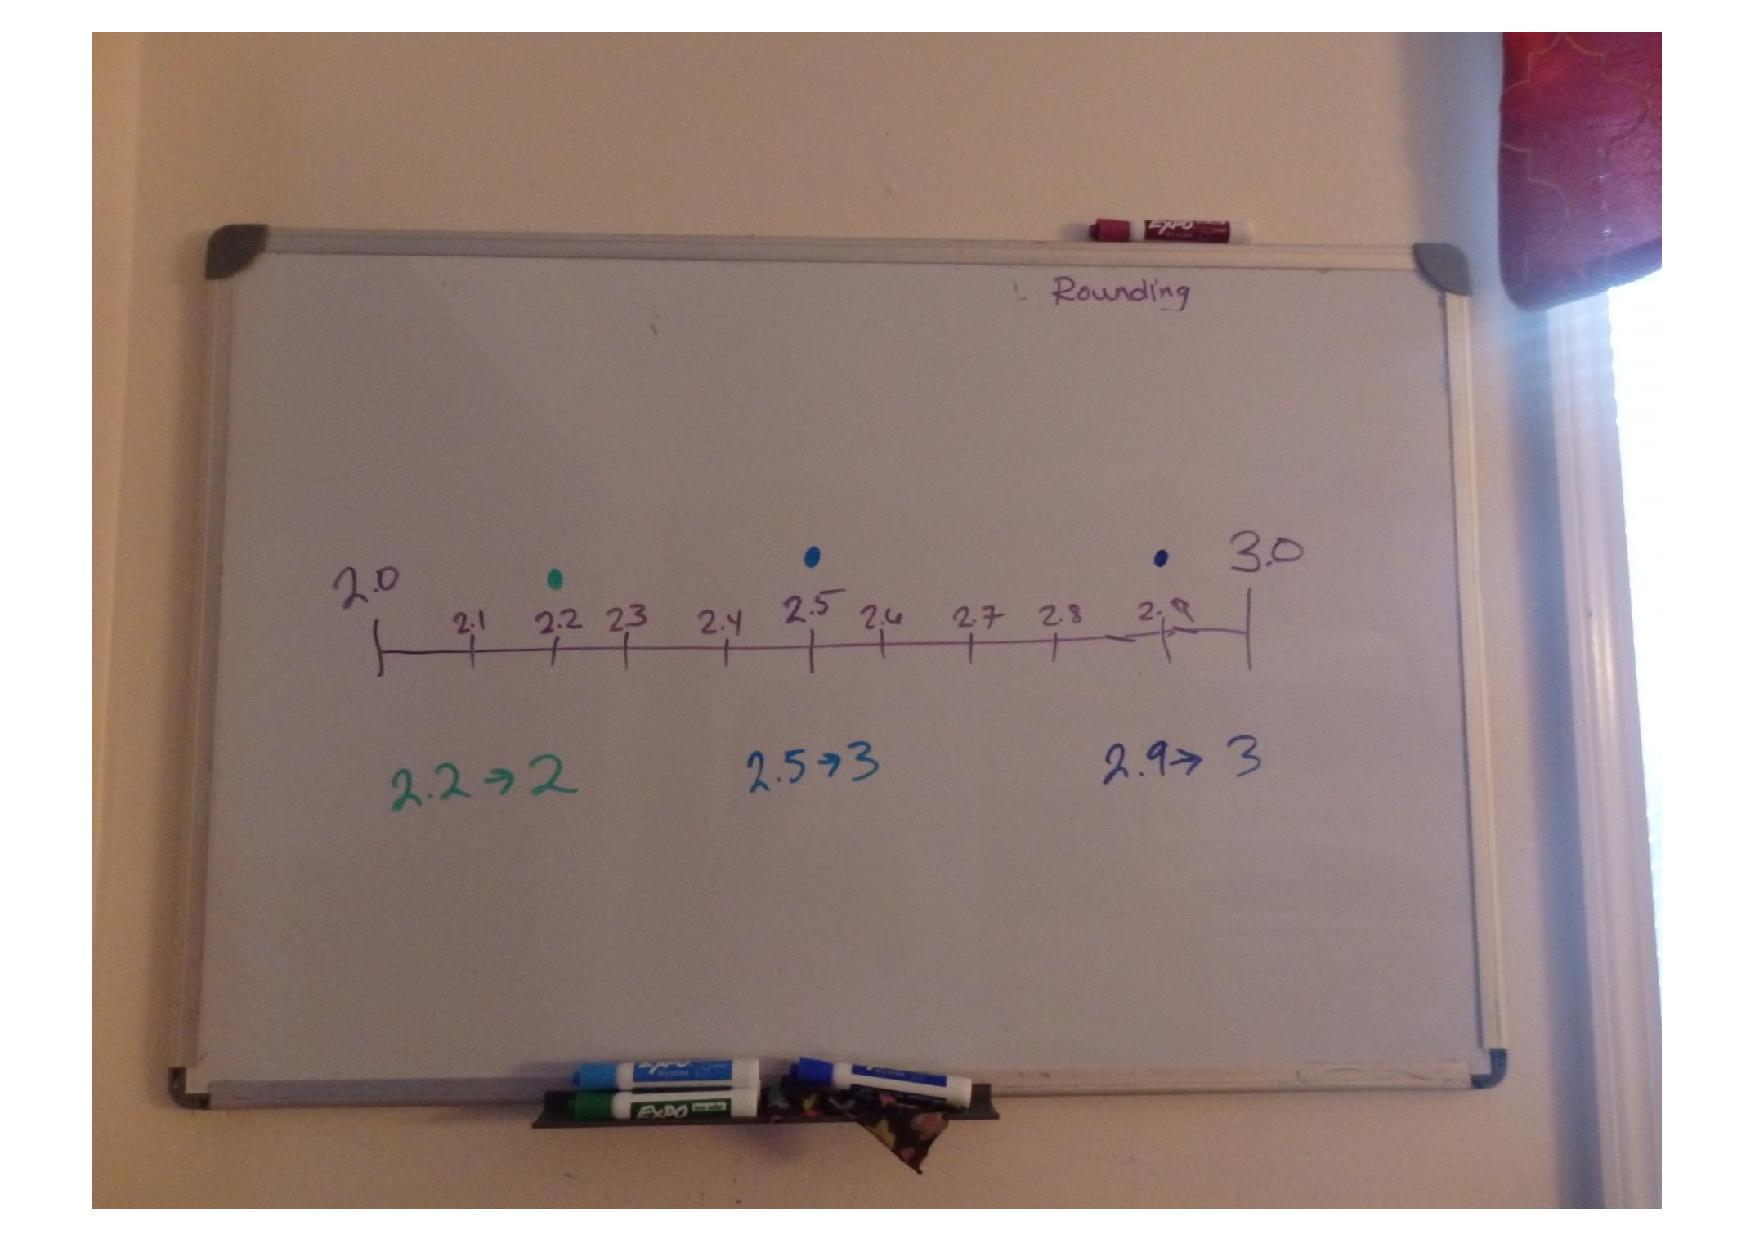 EXPO
Rounding
2.0 2.1 2.2 2.3 2.4 2.5 2.6 2.7 2.8 2.9 3.0
2.2 → 2 2.5 → 3 2.9 → 3
EXPO
EXPO